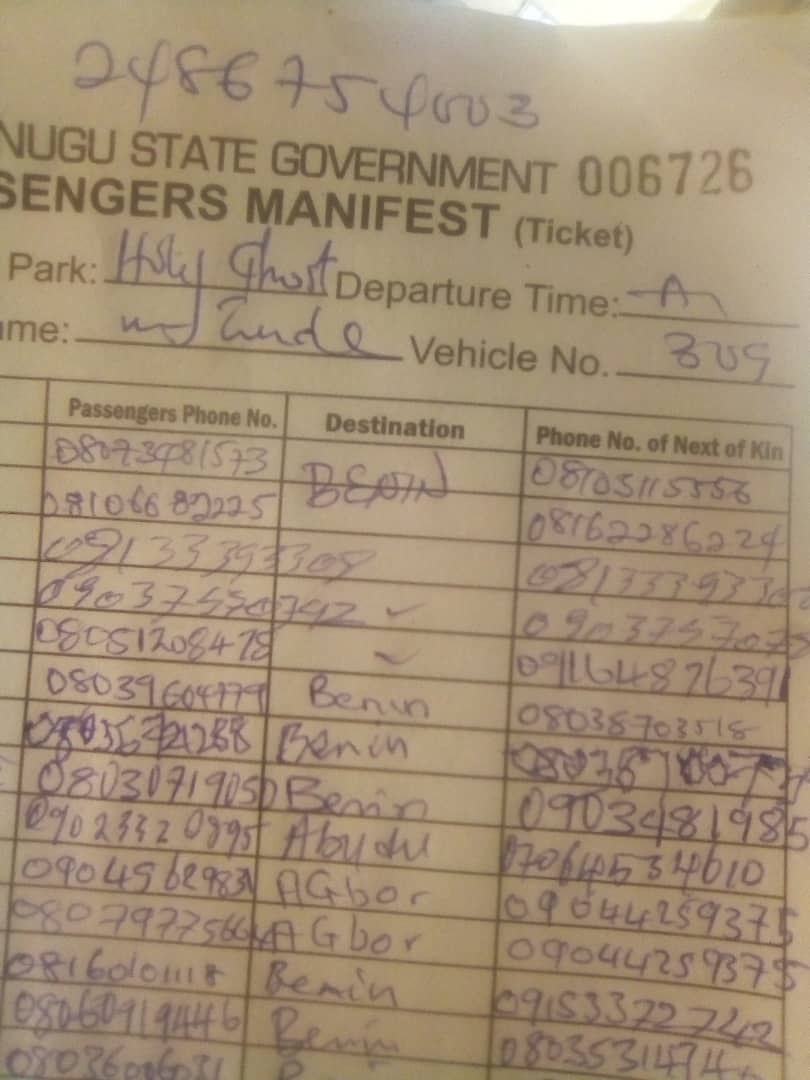 2486754003
NUGU STATE GOVERNMENT 006726
SENGERS MANIFEST (Ticket)
Park: Holy Ghost Departure Time:
me: Vehicle No.
Passengers Phone No. Destination Phone No. of Next of Kin
08073481573 BENIN 08105115556
08106682225 08162286224
09133393308
✓
08051208478 ✓ 09164876391
08039604779 Benin 08038703518
Benin
08030719050 Benin 0903481985
09023320895 Abudu 07064534610
09049629831 AGbor 09044259375
AGbor 09044259375
Benin 09153372742
08060919446 Benin
08036006031